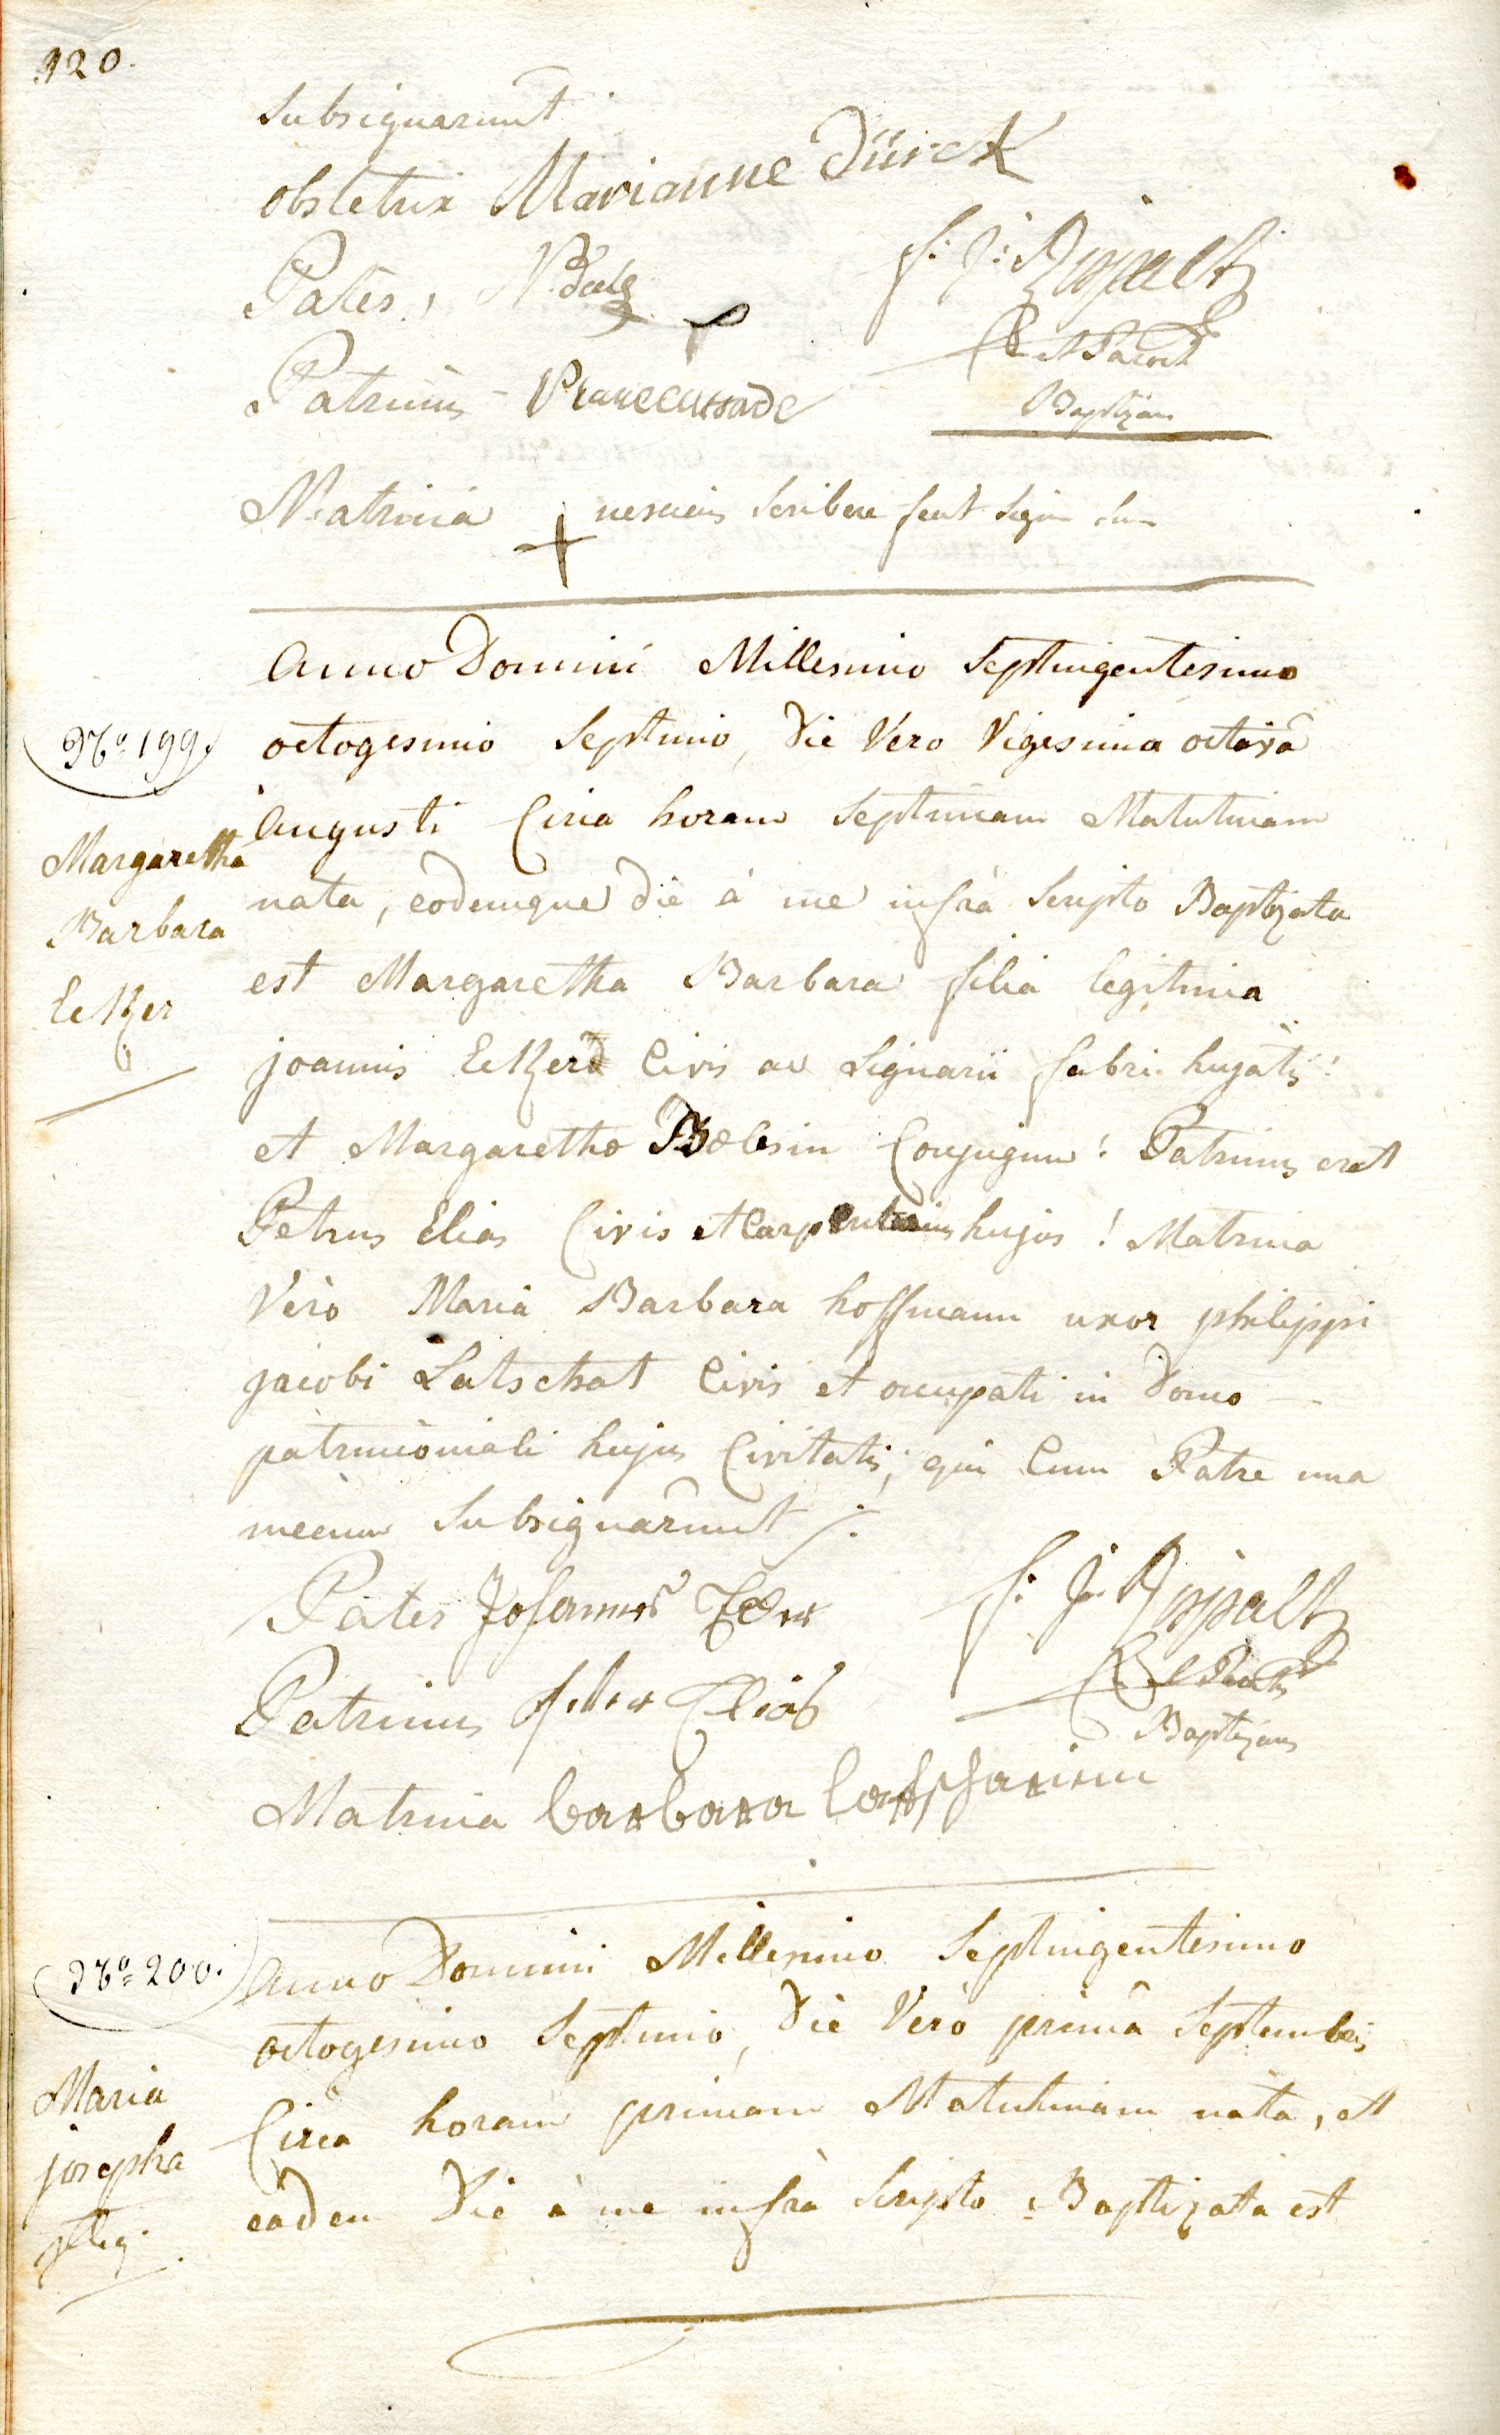 120.
Subsignarunt
obstetrix Marianne Dürck
Pater,
f: j: Ruppalt
Patrinus -
Baptizans
Matrina + nesciens scribere fecit sign su
Anno Domini Millesimo Septingentesimo
No. 199.
octogesimo Septimo, Die Vero Vigesima octavâ
Augusti Circa horam Septimam Matutinam
Margaretha
nata, eodemque die à me infrà Scripto Baptizata
Barbara
est Margaretha Barbara filia legitima
Ecker
joannis Eckerd Civis ac Lignarii fabri hujatis!
et Margaretha Boelesin Conjugum! Patrinus erat
Petrus Elias Civis et Carpentarius hujas! Matrina
Verò Maria Barbara hoffmann uxor philippi
jacobi Latschat Civis et occupati in Domo -
patrimoniali hujus Civitatis, qui Cum Patre una
mecum Subsignârunt ./.
Pater Johannes Ecker
f: j: Ruppalt
Patrinus Peter Elias
Baptizans
Matrina barbara latschariein
No. 200.
Anno Domini Millesimo Septingentesimo
octogesimo Septimo, Die Verò primâ Septembris
Maria
Circa horam primam Matutinam nata, et
josepha
eâdem Die à me infrà Scripto Baptizata est